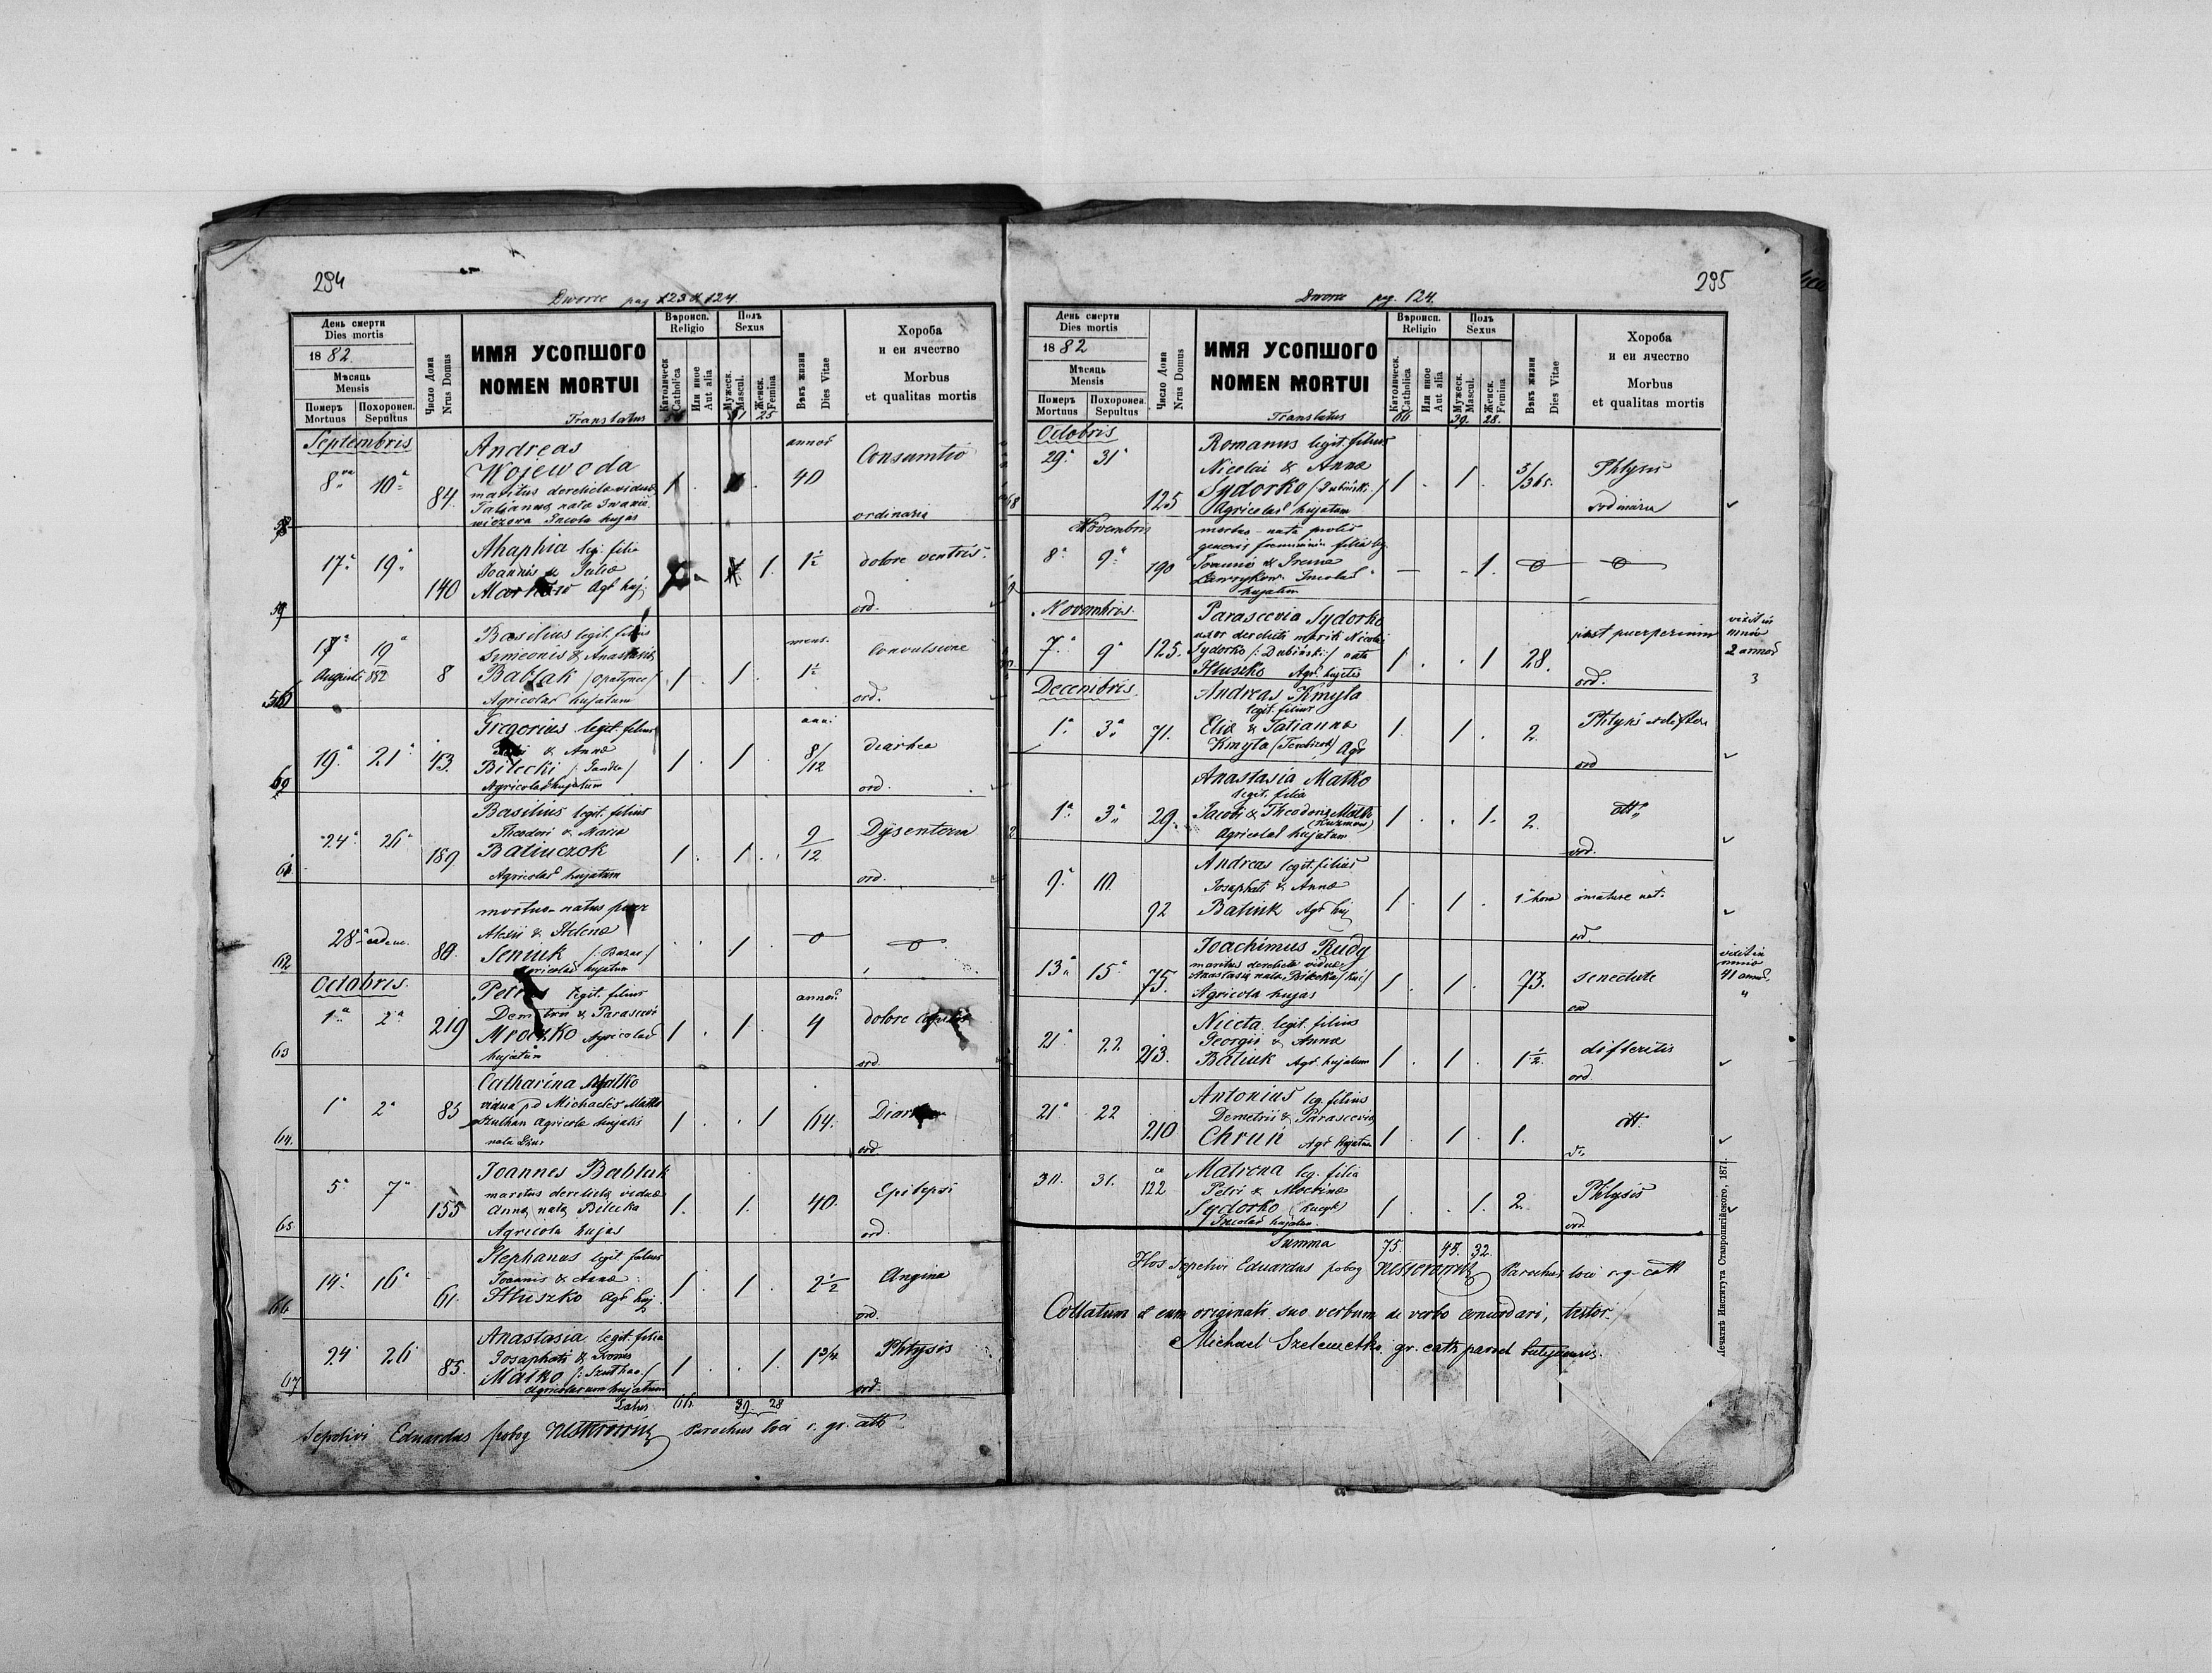 294
Dworce pag 123 & 124.
День смерти
Dies mortis
1882.
Мѣсяць
Mensis
Померъ
Mortuus
Похоронен.
Sepultus
Число Дома
Nrus Domus
ИМЯ УСОПШОГО
NOMEN MORTUI
Translatus
Вѣроисп.
Religio
Католическ
Catholica
Или иное
Aut alia
Полъ
Sexus
Мужеск.
Mascul.
Женск.
Femina
25
Вѣкъ жизни
Dies Vitae
Хороба
и еи ячество
Morbus
et qualitas mortis
Septembris
8va 10a 84. Andreas
Wojewoda
maritus derelictae viduae
Tatiannae nata Iwanie
wiczowa Incola hujas
1 . annor 40 Consumtio
ordinaria
17a 19a 140 Ahaphia leg. filia
Joannis & Juliae
Agr huj.
1. 1½ dolore ventris.
ord.
59
17a 19a Augusti 882 8 Basilius legit. filius
Simeonis & Anastasiae
Bablak /Opatynec/
Agricolar hujatum
1 . 1 . mens. 1½ Convulsione
ord.
19a 21a 43. Gregorius legit. filius
& Annae
Bilecki /: Panda /
Agricolar hujatum
1 . 1 . anni 8/12 diarhea
ord.
60
24a 26a 189 Basilius legit. filius
Theodori & Maria
Batiuczok
Agricolar hujatum
1 . 1 . 9/12 Dysenteria
ord.
61.
28a eadem. 80. mortuo-natus puer
Alexii & Helenae
Seniuk /: Bazar /
hujatum
. . 1
62
Octobris.
1a 2a 219 Petrus legit. filius
Demetrii & Parascevi
Mroczko Agricolar
hujatum
1 . 1 . annor. 4 dolore
ord.
63
1a 2a 85 Catharina Matko
vidua p d Michaelis Matko
Szulhan Agricola hujatis
nata
1 . . 1 64. Diarhea
ord.
64.
5a 7a 155 Joannes Bablak
maritus derelicta vidua
Anna nata Bilecka
Agricola hujas
1. 1. 40. Epilepsi
ord.
65.
14a 16a 61. Stephanus legit. filius
Joannis & Annae
Hluszko Agr huj.
1 . 1 . 2½ Angina
ord.
66
24 26 85. Anastasia legit. filia
Josaphati &
Matko /: Szulhan /
Agricolarum hujatum
1 . . 1. 1¾ Phtysis
ord.
67
Latus 66. 39. 28
Sepelivi Eduardus pobog Nesterowicz Parochus loci r. gr. cath
295
Dworce pag. 124.
День смерти
Dies mortis
1882
Мѣсяць
Mensis
Померъ
Mortuus
Похоронен.
Sepultus
Число Дома
Nrus Domus
ИМЯ УСОПШОГО
NOMEN MORTUI
Translatus
Вѣроисп.
Religio
Католическ.
Catholica
Или иное
Aut alia
Полъ
Sexus
Мужеск.
Mascul.
Женск.
Femina
66 39. 28.
Вѣкъ жизни
Dies Vitae
Хороба
и еи ячество
Morbus
et qualitas mortis
Octobris
29a 31a 125 Romanus legit. filius
Nicolai & Annae
Sydorko /Dubiński./
Agricolar hujatum
1 . 1 . 5/365. Phtysis
ordinaria
Novembris
8a 9a 190 mortuo-nata prolis
generis foeminini filia leg.
Joannis & Irenae
Ławrykow. Incolar
hujatum
1.
Novembris.
7a 9a 125. Parascevia Sydorko
uxor derelicti mariti Nicolai
Sydorko /: Dubiński:/ nata
Hluszko Agr. hujatis
1 . . 1 28. post puerperium
ord.
vixit in
2 annor
3
Decembris.
1a 3a 71. Andreas Kmyta
legit. filius
Eliae & Tatiannae
Kmyta Agr
1. 1 . 2. Phtysis
ord
1a 3a 29. Anastasia Matko
legit. filia
Jacobi & Theodoria Matko
(Kuzmow)
Agricolar hujatum
1 . . 1. 2. dtto
ord.
9a 10. 92 Andreas legit. filius
Josaphati & Annae
Batiuk Agr huj.
1 . 1 . 1 hora imature nat.
ord.
13a 15a 75. Joachimus Rudy
maritus derelicta viduae
Anastasia nata
Agricola hujas
1 . 1 . 73. senectute
ord
vixit in
41 annor.
21a 22 213. Niceta legit. filius
Georgii & Annae
Batiuk Agr. hujatum
1 . 1 . 1½ difteritis
ord.
21a 22 210 Antonius leg. filius
Demetrii & Parascevia
Chruń Agr hujatum
1 . 1 . 1. dtt.
30. 31. 122 Matrona leg. filia
Petri & Mocrinae
Sydorko
Incolar hujatum.
1 . . 1. 2. Phtysis
ord.
Summa 75. 45. 32.
Hos sepelivi Eduardus pobog Nesterowicz Parochus loci r. g. cath
Collatum & cum originali suo verbum de verbo concordari, testor.
Michael Szelemetko. gr. cath paroch
Печатнѣ Института Ставропигійского, 187